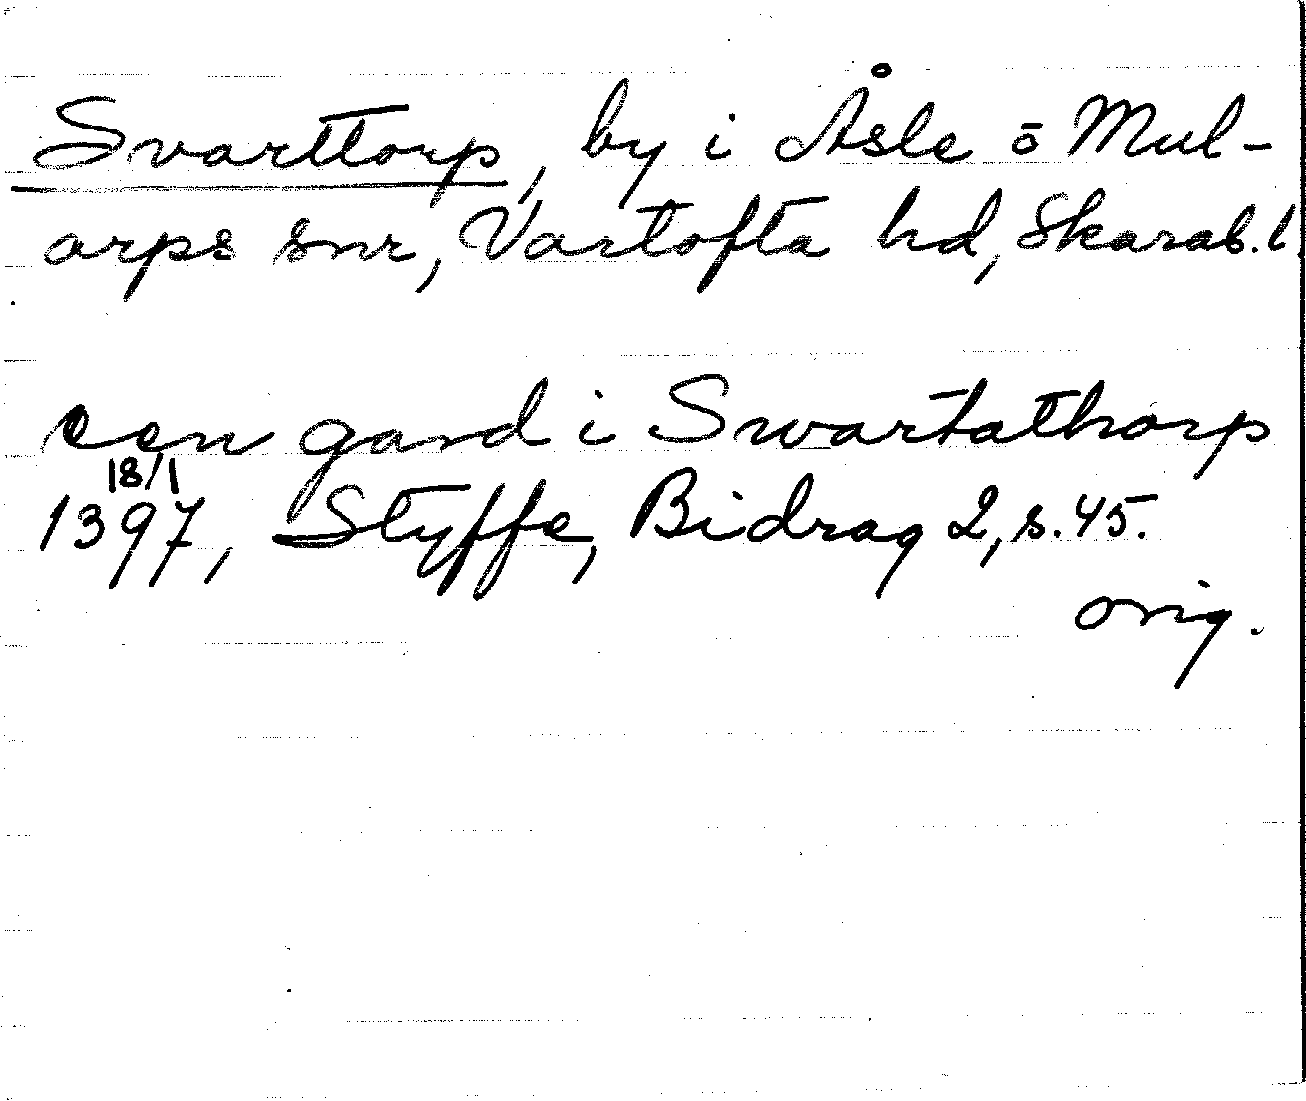 Svarttorp, by i Åsle o Mul-
arps snr, Vartofta hd, Skarab. l.
een gard i Swartathorp
18/1
1397, Styffe, Bidrag 2, s. 45.
orig.